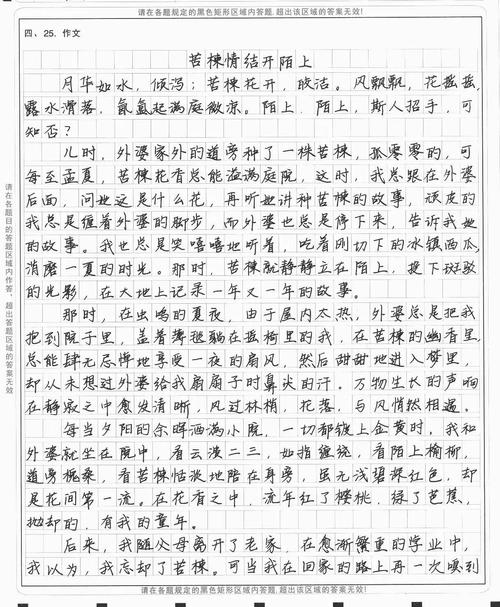 请在各题规定的黑色矩形区域内答题,超出该区域的答案无效!
四、25. 作文
苦楝情结开陌上
月华如水，倾泻；苦楝花开，皎洁。风飘飘，花摇摇，
露水滑落，氤氲起满庭微凉。陌上，陌上，斯人招手，可
知否？
儿时，外婆家外的道旁种了一株苦楝，孤零零的，可
每至孟夏，苦楝花香总能溢满庭院，这时，我总跟在外婆
后面，问她这是什么花，再听她讲种苦楝的故事，顽皮的
我总是缠着外婆的脚步，而外婆也总是停下来，告诉我她
的故事。我也总是笑嘻嘻地听着，吃着刚切下的冰镇西瓜，
消磨一夏的时光。那时，苦楝就静静立在陌上，投下斑驳
的光影，在大地上记录一年又一年的故事。
那时，在虫鸣的夏夜，由于屋内太热，外婆总是把我
抱到院子里，盖着薄毯躺在摇椅里的我，在苦楝的幽香里，
总能肆无忌惮地享受一夜的扇风，然后甜甜地进入梦里，
却从未想过外婆给我扇扇子时鼻尖的汗。万物生长的声响
在静寂之中愈发清晰，风过林梢，花落，与风悄然相遇。
每当夕阳的余晖洒满小院，一切都镀上金黄时，我和
外婆就坐在院中，看云漠二三，如指缠绕，看陌上榆柳，
道旁槐桑，看苦楝恬淡地陪在身旁，虽无浅碧深红色，却
是花间第一流。在花香之中，流年红了樱桃，绿了芭蕉，
抛却的，有我的童年。
后来，我随父母离开了老家，在愈渐繁重的学业中，
我以为，我忘却了苦楝。可当我在回家的路上再一次嗅到
请在各题规定的黑色矩形区域内答题,超出该区域的答案无效!
请在各题目的答题区域内作答，超出答题区域的答案无效